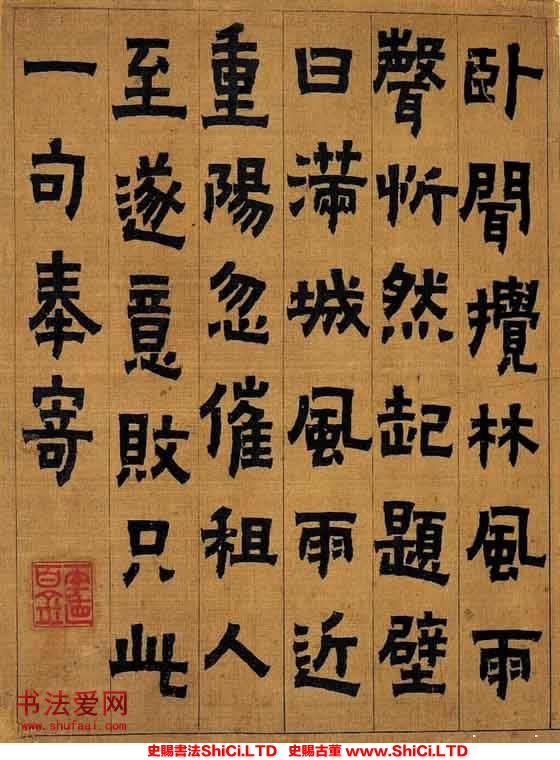 卧聞攪林風雨
聲忻然起題壁
曰滿城風雨近
重陽忽催租人
至遂意敗只此
一句奉寄
书法爱网
www.shufaai.com
史賜書法ShiCi.LTD 史賜古董 www.ShiCi.LTD